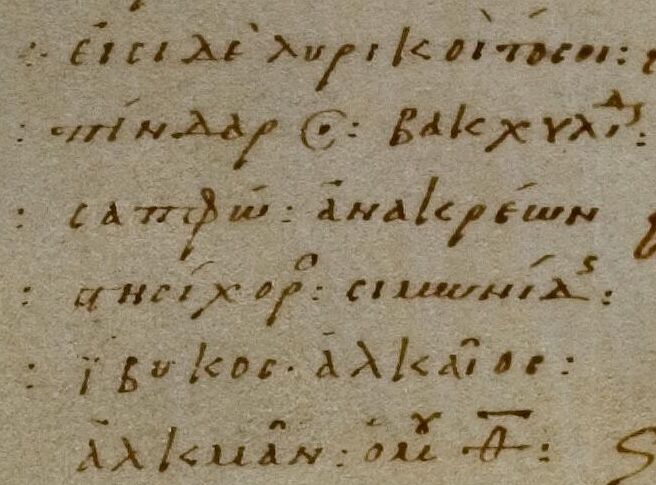 : εἰσὶ δὲ λυρικοὶ τόσοι:
: πίνδαρος: βακχυλίδς:
: σαπφώ: ἀνακρέων
: στησίχορο: σιμωνίδς:
: ϊβυκος· ἀλκαῖος:
ἀλκμᾶν: ὁμοῦ θ̅: